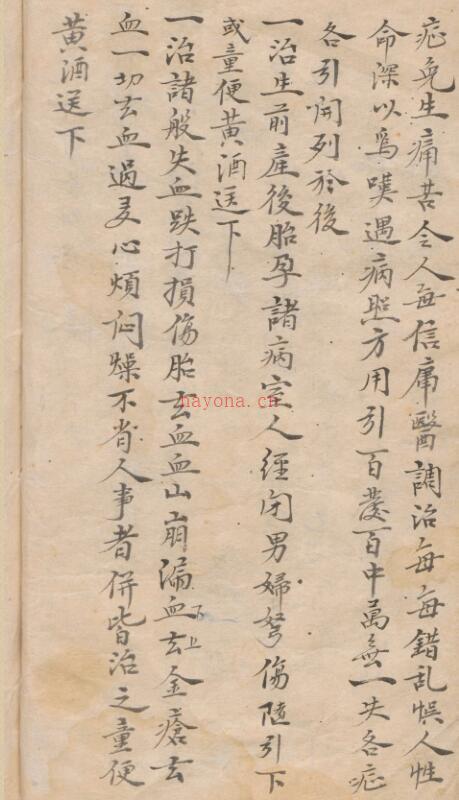 症免生痛苦今人每信庸醫調治每每錯乱悞人性
命深以爲嘆遇病照方用引百發百中萬無一失各症
各引開列於後
一治生前產後胎孕諸病室人經闭男婦努傷陡引下
或童便黄酒送下
一治諸般失血跌打損傷胎去血血山崩漏血去金瘡去
下上
血一切去血過多心煩闷燥不省人事者併皆治之童便
黄酒送下
hayona.cn